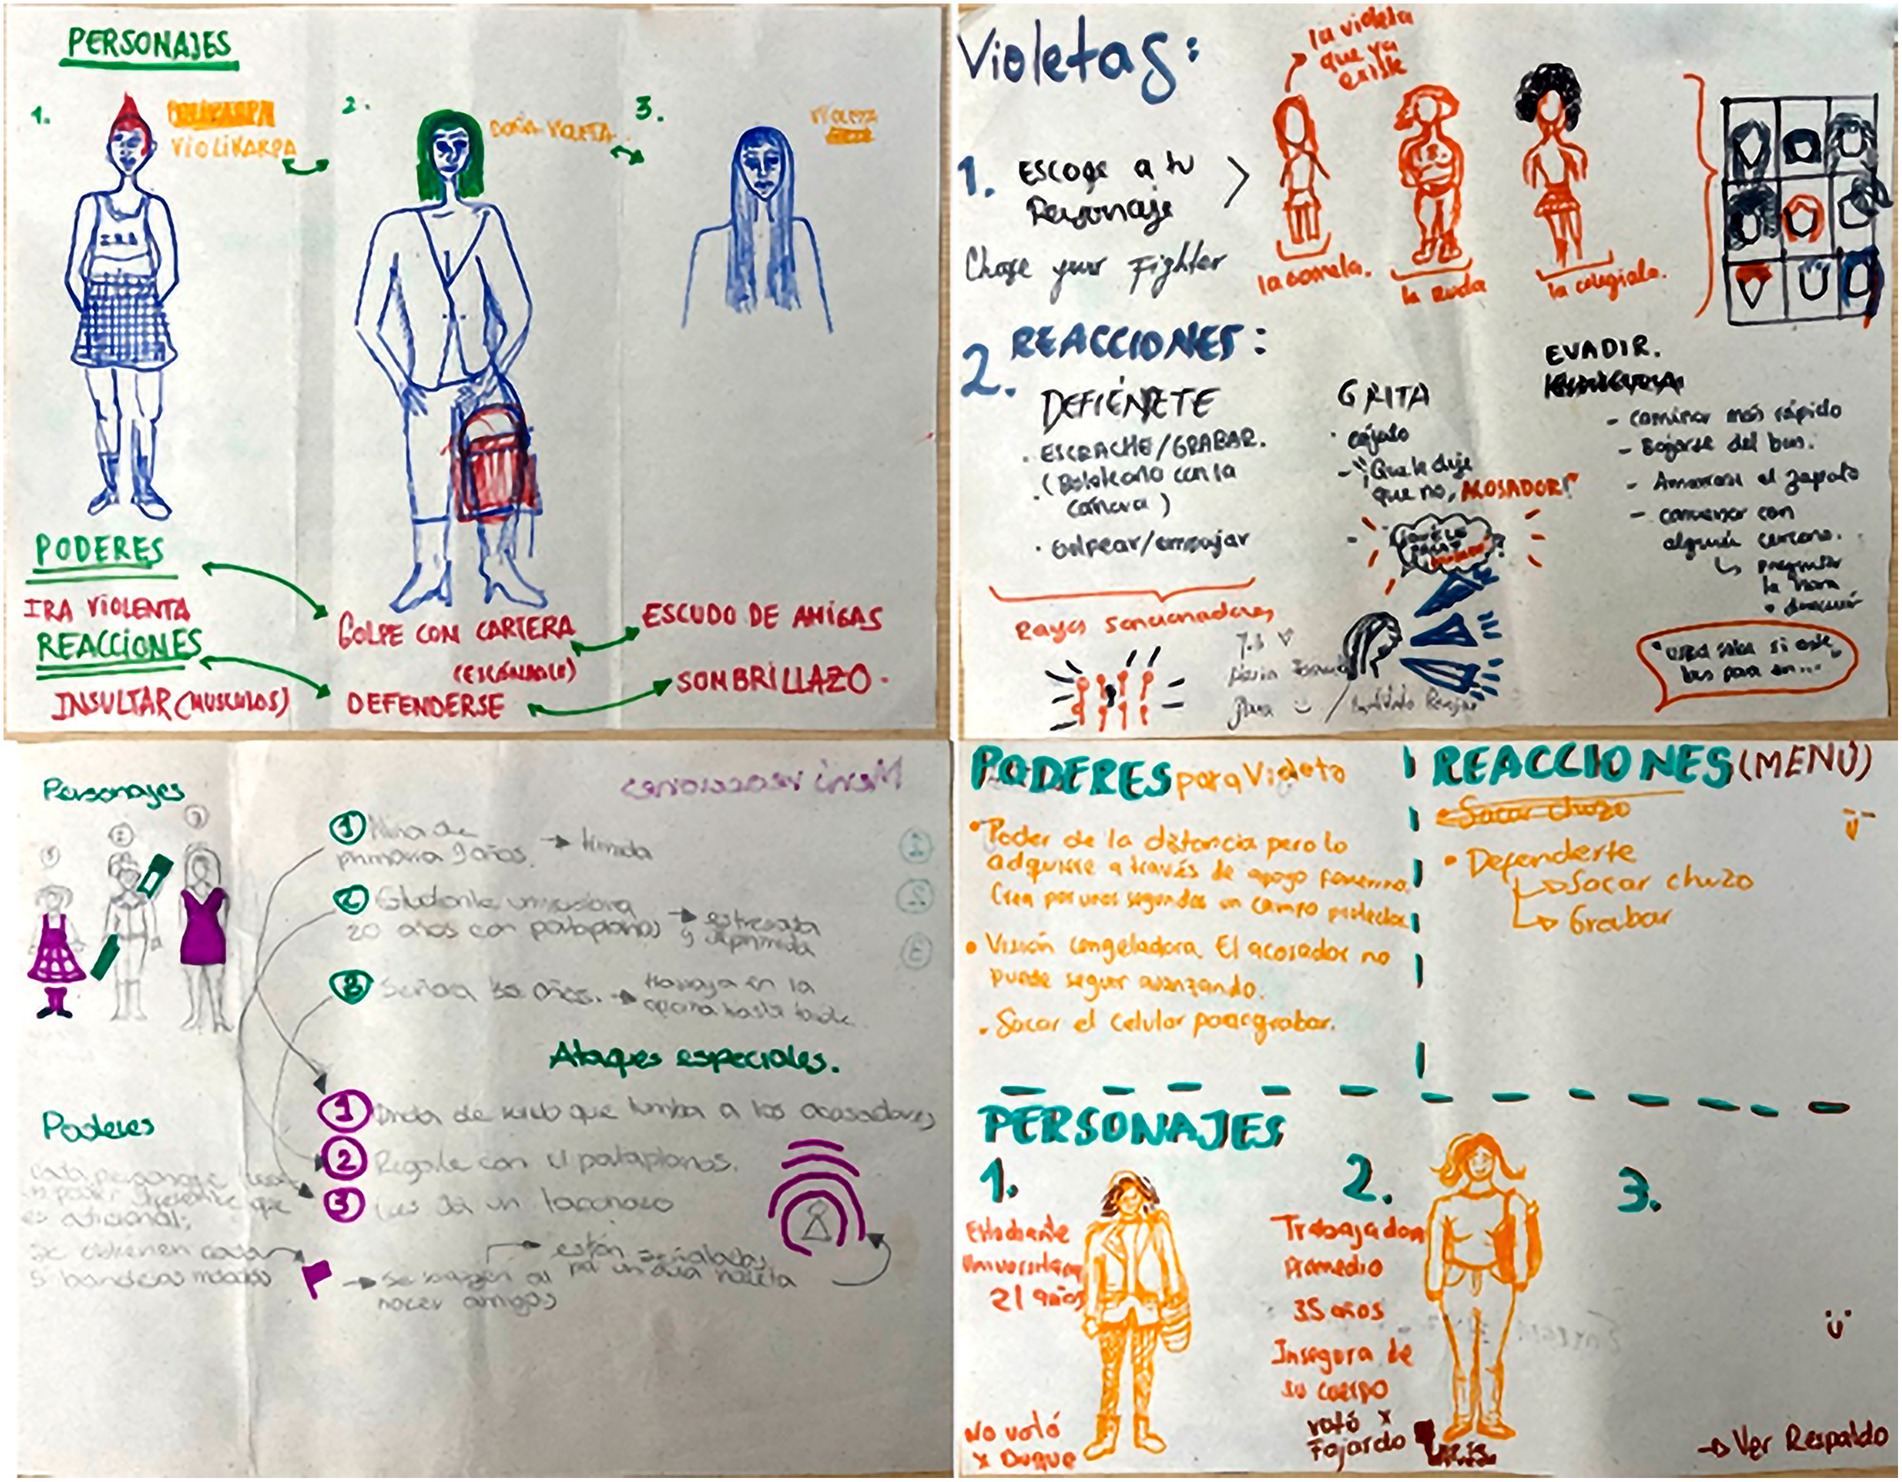 PERSONAJES
1.
VIOLIKARPA
2.
DOÑA VIOLETA
3.
VIOLETA
IRA
PODERES
IRA VIOLENTA
GOLPE CON CARTERA
(ESCÁNDALO)
ESCUDO DE AMIGAS
REACCIONES
INSULTAR (MUSCULOS)
DEFENDERSE
SOMBRILLAZO.
Violetas:
la violeta
que ya
existe
1. Escoge a tu
Personaje
Chose your Fighter
la gomela.
la ruda
la colegiala.
2. REACCIONES:
DEFIÉNDETE
. ESCRACHE/GRABAR.
. (Boloteano con la
cámara)
. Golpear/empujar
Rayos sancionadores
GRITA
. cójalo
- "¡Que le dije
que no, ACOSADOR!"
EVADIR.
- caminar más rápido
- Bajarse del bus.
- Amarrarse el zapato
- conversar con
alguien cercano.
preguntar
la hora
"usted sabe si este
bus pasa en..."
Personajes
1
2
3
Menú reacciones
1 Niña de
primaria 9 años. → tímida
2 Estudiante universitaria
20 años con portaplanos → estresada
y deprimida
3 Señora 30 años. → trabaja en la
oficina hasta tarde.
Ataques especiales.
Poderes
cada personaje
un poder diferente que
es adicional;
se obtienen cada
5 banderas moradas
1 Onda de que tumba a los acosadores
2 Pégale con el portaplanos.
3 Les da un taconazo
→ se cargan al
hacer amigas
→ están señaladas
por un aura violeta
PODERES para Violeta
• Poder de la distancia pero lo
adquiere a través de apoyo femenino.
Crea por unos segundos un campo protector
• Visión congeladora. El acosador no
puede seguir avanzando.
. Sacar el celular para grabar.
REACCIONES (MENÚ)
• Sacar chuzo
• Defenderte
→ Sacar chuzo
→ Grabar
PERSONAJES
1.
Estudiante
Universitaria
21 años
No votó
x Duque
2.
Trabajadora
Promedio
35 años
Insegura de
su cuerpo
votó x
Fajardo
3.
→ Ver Respaldo